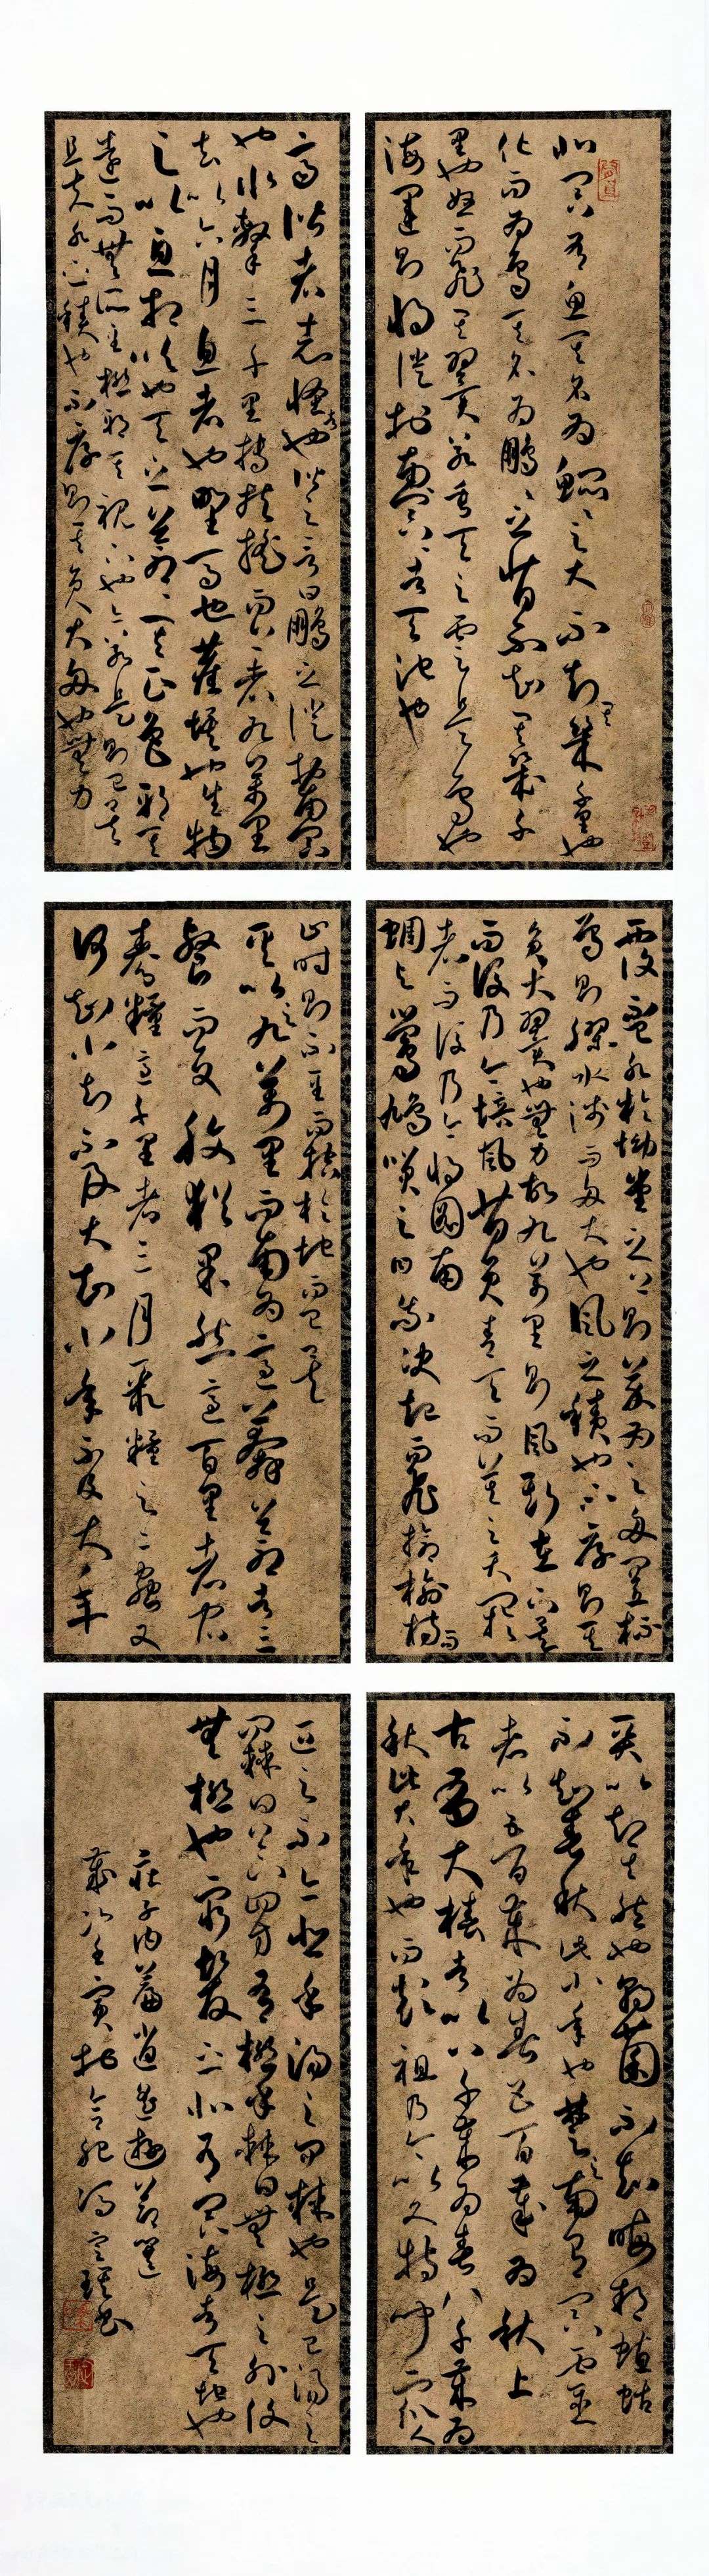 北冥有魚其名為鯤〻之大不知其幾千里也
化而為鳥其名為鵬〻之背不知其幾千
里也怒而飛其翼若垂天之雲是鳥也
海運則將徙於南冥〻者天池也
齊諧者志怪者也諧之言曰鵬之徙於南冥
也水擊三千里摶扶搖而上者九萬里
去以六月息者也野馬也塵埃也生物
之以息相吹也天之蒼〻其正色邪其
遠而無所至極邪其視下也亦若是則已矣
且夫水之積也不厚則其負大舟也無力
覆杯水於坳堂之上則芥為之舟置杯
焉則膠水淺而舟大也風之積也不厚則其
負大翼也無力故九萬里則風斯在下矣
而後乃今培風背負青天而莫之夭閼
者而後乃今將圖南
蜩與鷽鳩笑之曰我決起而飛搶榆枋而
止時則不至而控於地而已矣
奚以之九萬里而南為適莽蒼者三
餐而反腹猶果然適百里者宿
舂糧適千里者三月聚糧之二蟲又
何知小知不及大知小年不及大年
奚以知其然也朝菌不知晦朔蟪蛄
不知春秋此小年也楚之南有冥靈
者以五百歲為春五百歲為秋上
古有大椿者以八千歲為春八千歲為
秋此大年也而彭祖乃今以久特聞眾人
匹之不亦悲乎湯之問棘也是已湯之
問棘曰上下四方有極乎棘曰無極之外復
無極也窮髮之北有冥海者天池也
莊子內篇逍遙遊節選
歲次壬寅於合肥馮書